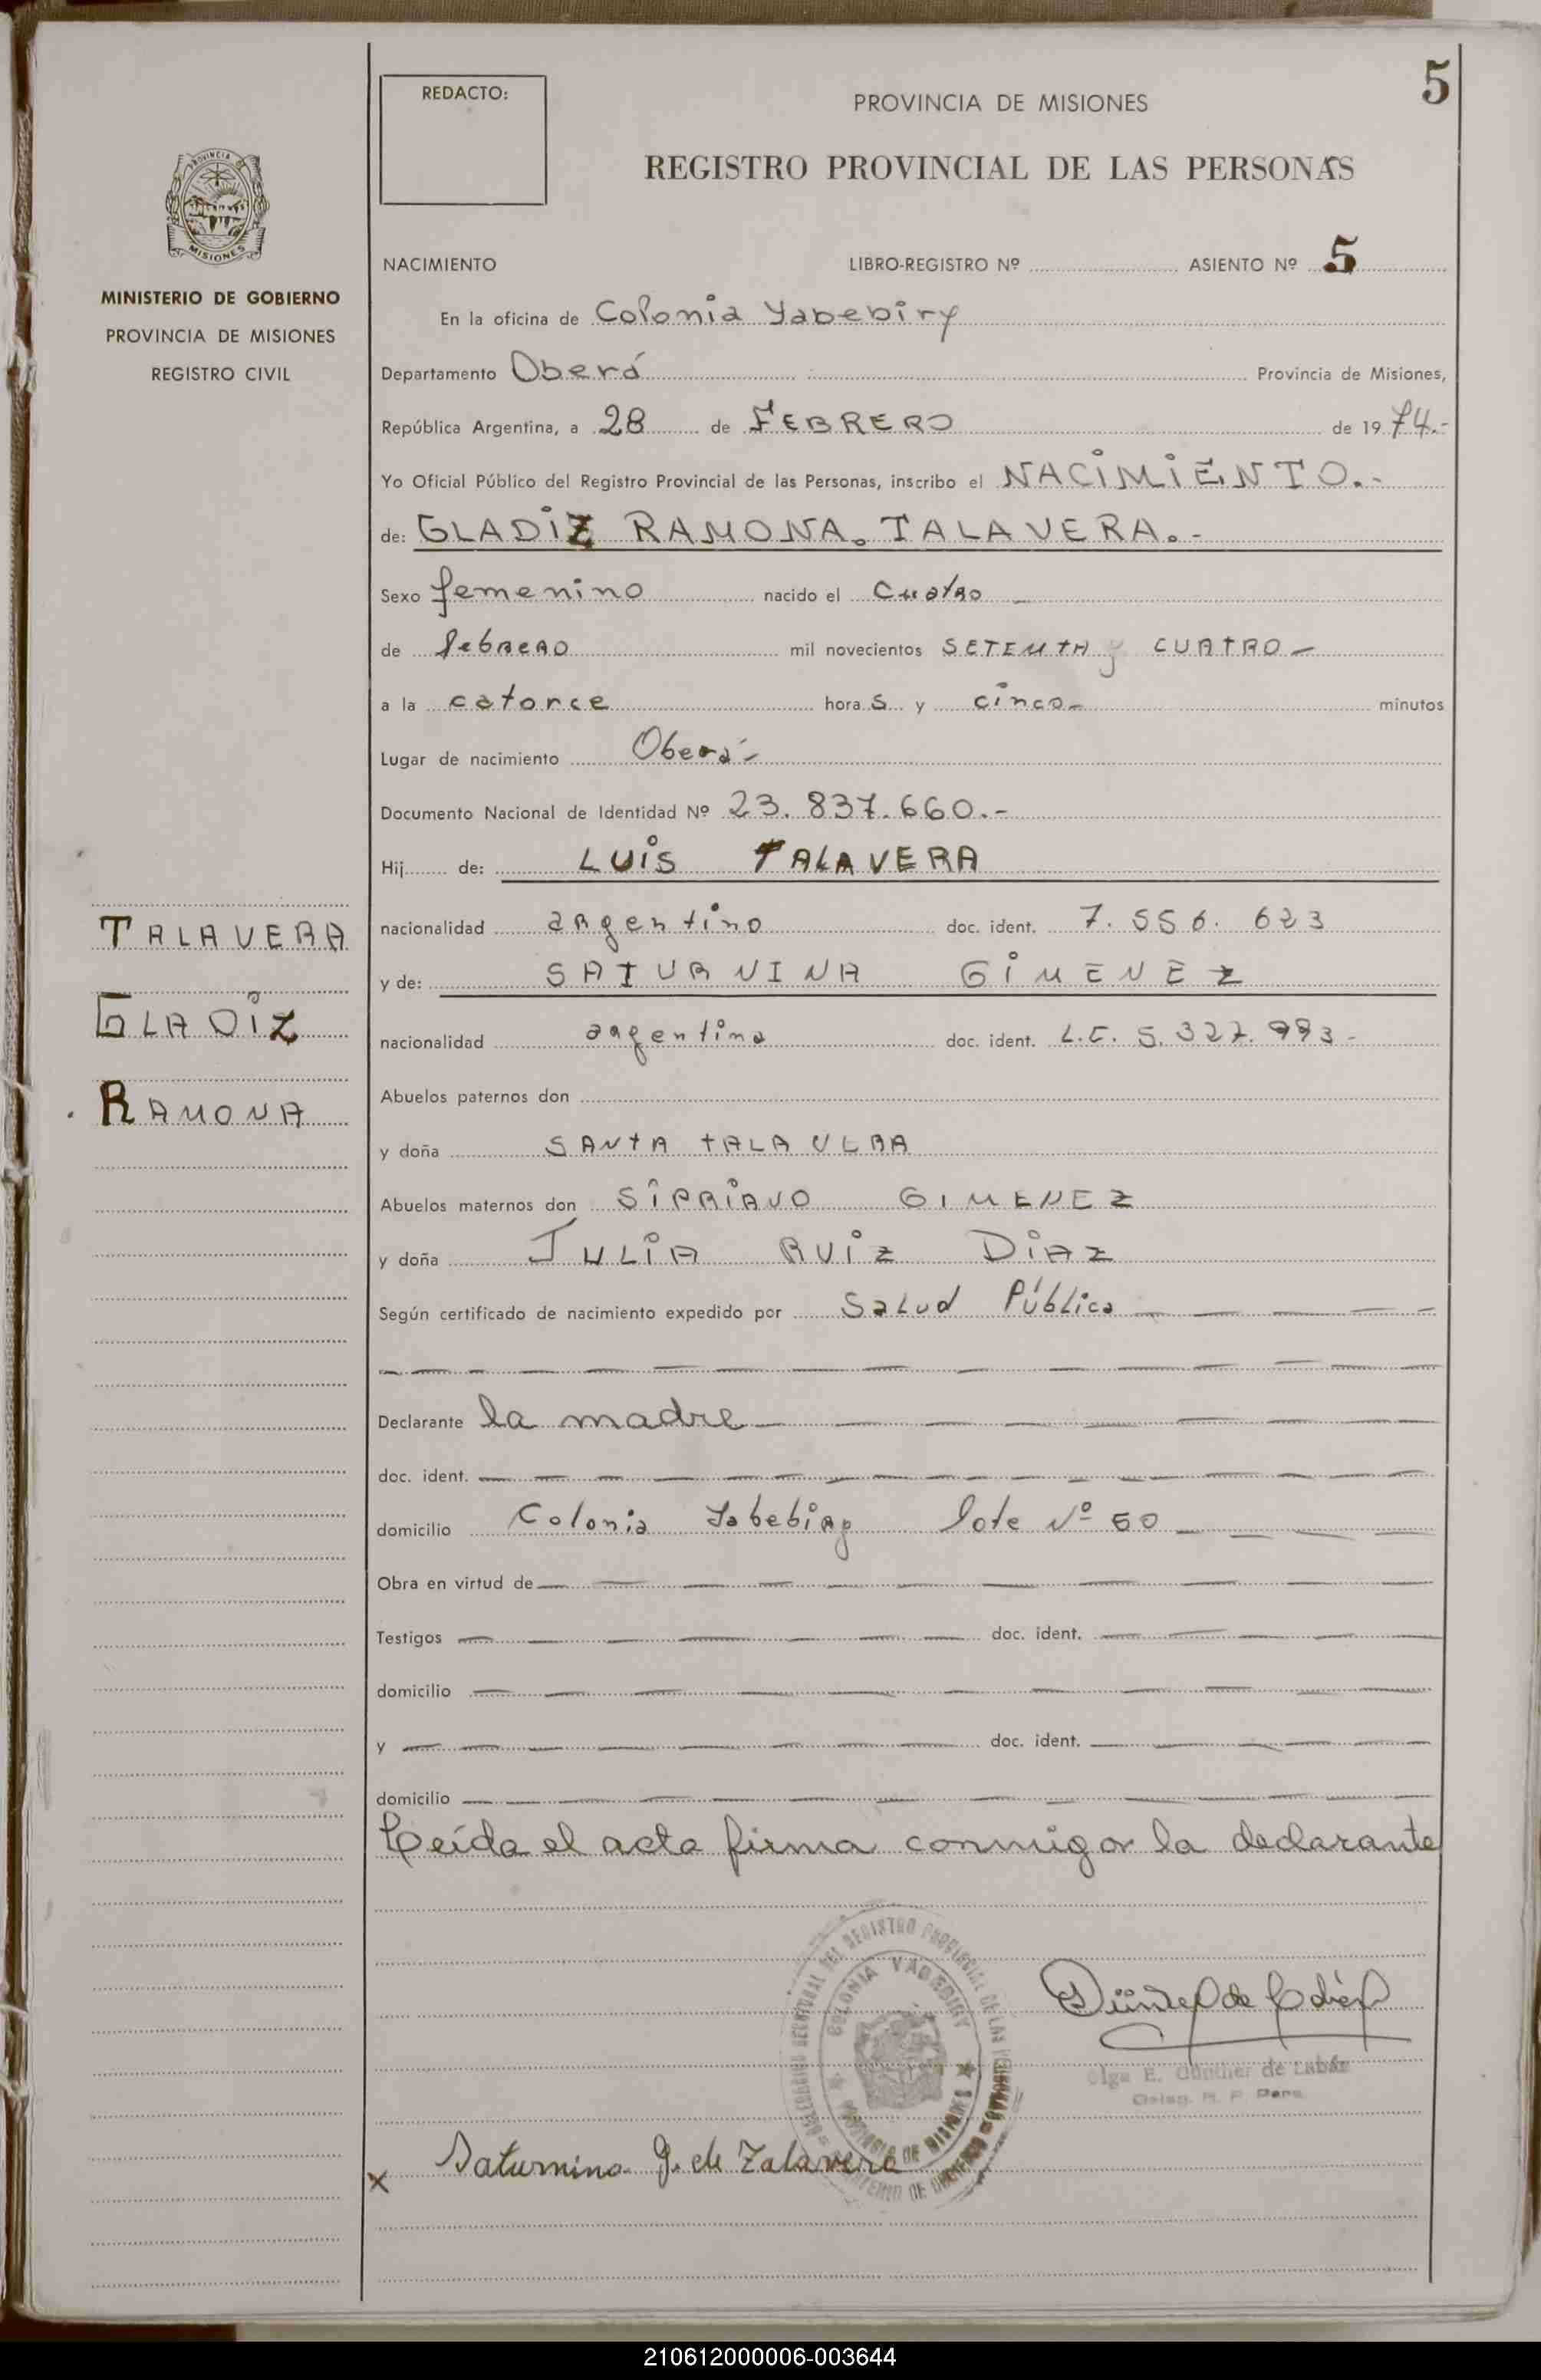 5
REDACTO:
PROVINCIA DE MISIONES
REGISTRO PROVINCIAL DE LAS PERSONAS
PROVINCIA DE
MISIONES
MINISTERIO DE GOBIERNO
PROVINCIA DE MISIONES
REGISTRO CIVIL
NACIMIENTO LIBRO-REGISTRO Nº ASIENTO Nº 5
En la oficina de Colonia Yabebiry
Departamento Oberá Provincia de Misiones,
República Argentina, a 28 de FEBRERO de 1974.-
Yo Oficial Público del Registro Provincial de las Personas, inscribo el NACIMIENTO.-
de: GLADIZ RAMONA. TALAVERA.-
Sexo femenino nacido el cuatro
de febrero mil novecientos SETENTA y CUATRO -
a la catorce hora s y cinco - minutos
Lugar de nacimiento Oberá -
Documento Nacional de Identidad Nº 23.837.660.-
Hij de: LUIS TALAVERA
TALAVERA
nacionalidad argentino doc. ident. 7.556.623
y de: SATURNINA GIMENEZ
GLADIZ
nacionalidad argentina doc. ident. L.C. 5.327.993 -
Abuelos paternos don
RAMONA
y doña SANTA TALAVERA
Abuelos maternos don SIPRIANO GIMENEZ
y doña JULIA RUIZ DIAZ
Según certificado de nacimiento expedido por Salud Pública
Declarante la madre
doc. ident.
domicilio Colonia Yabebiry lote Nº 60
Obra en virtud de
Testigos doc. ident.
domicilio
y doc. ident.
domicilio
Leída el acta firma conmigo la declarante
REGISTRO PROVINCIAL DE LAS
COLONIA YABEBIRY
PROVINCIA DE MISIONES
Olga E. Günther de Labán
x Saturnina G. de Talavera
210612000006-003644